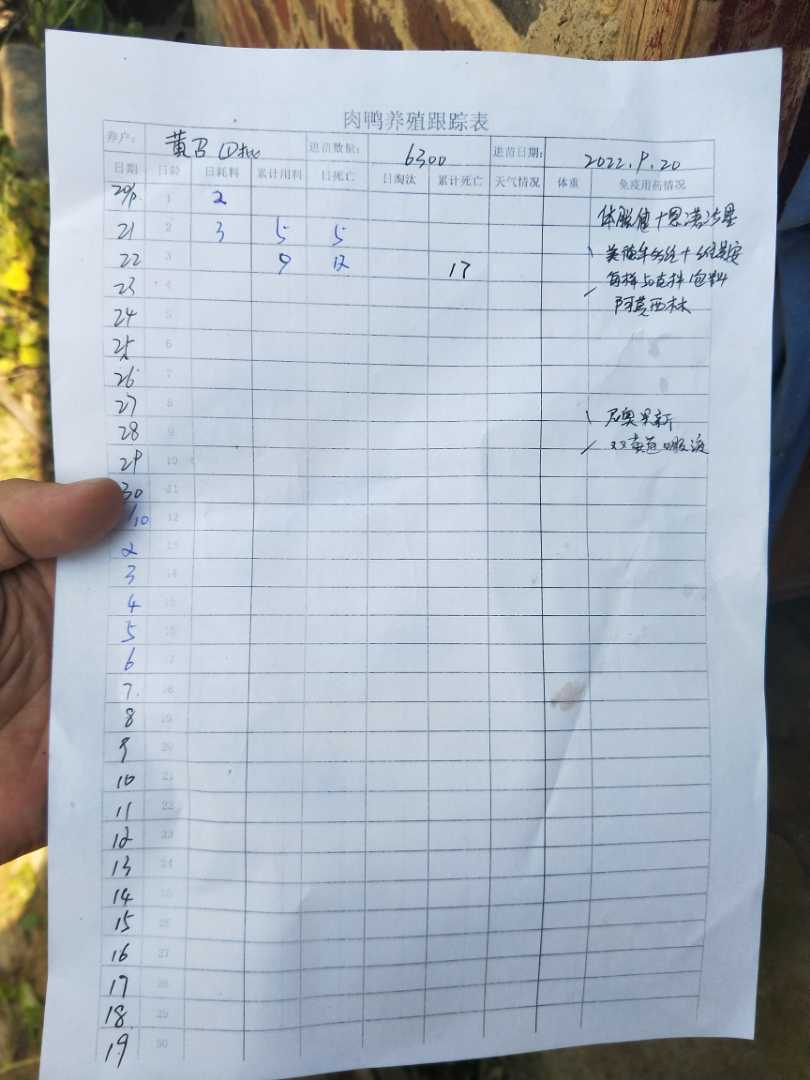 肉鸭养殖跟踪表
养户: 黄召 四批 进苗数量: 6300 进苗日期: 2022.9.20
日期 日龄 日耗料 累计用料 日死亡 日淘汰 累计死亡 天气情况 体重 免疫用药情况
20/9 1 2
21 2 3 5 5
22 3 9 12 17
23 4 阿莫西林
24 5
25 6
26 7
27 8
28 9
29 10 双黄连口服液
30 11
1/10 12
2 13
3 14
4 15
5 16
6 17
7 18
8 19
9 20
10 21
11 22
12 23
13 24
14 25
15 26
16 27
17 28
18 29
19 30